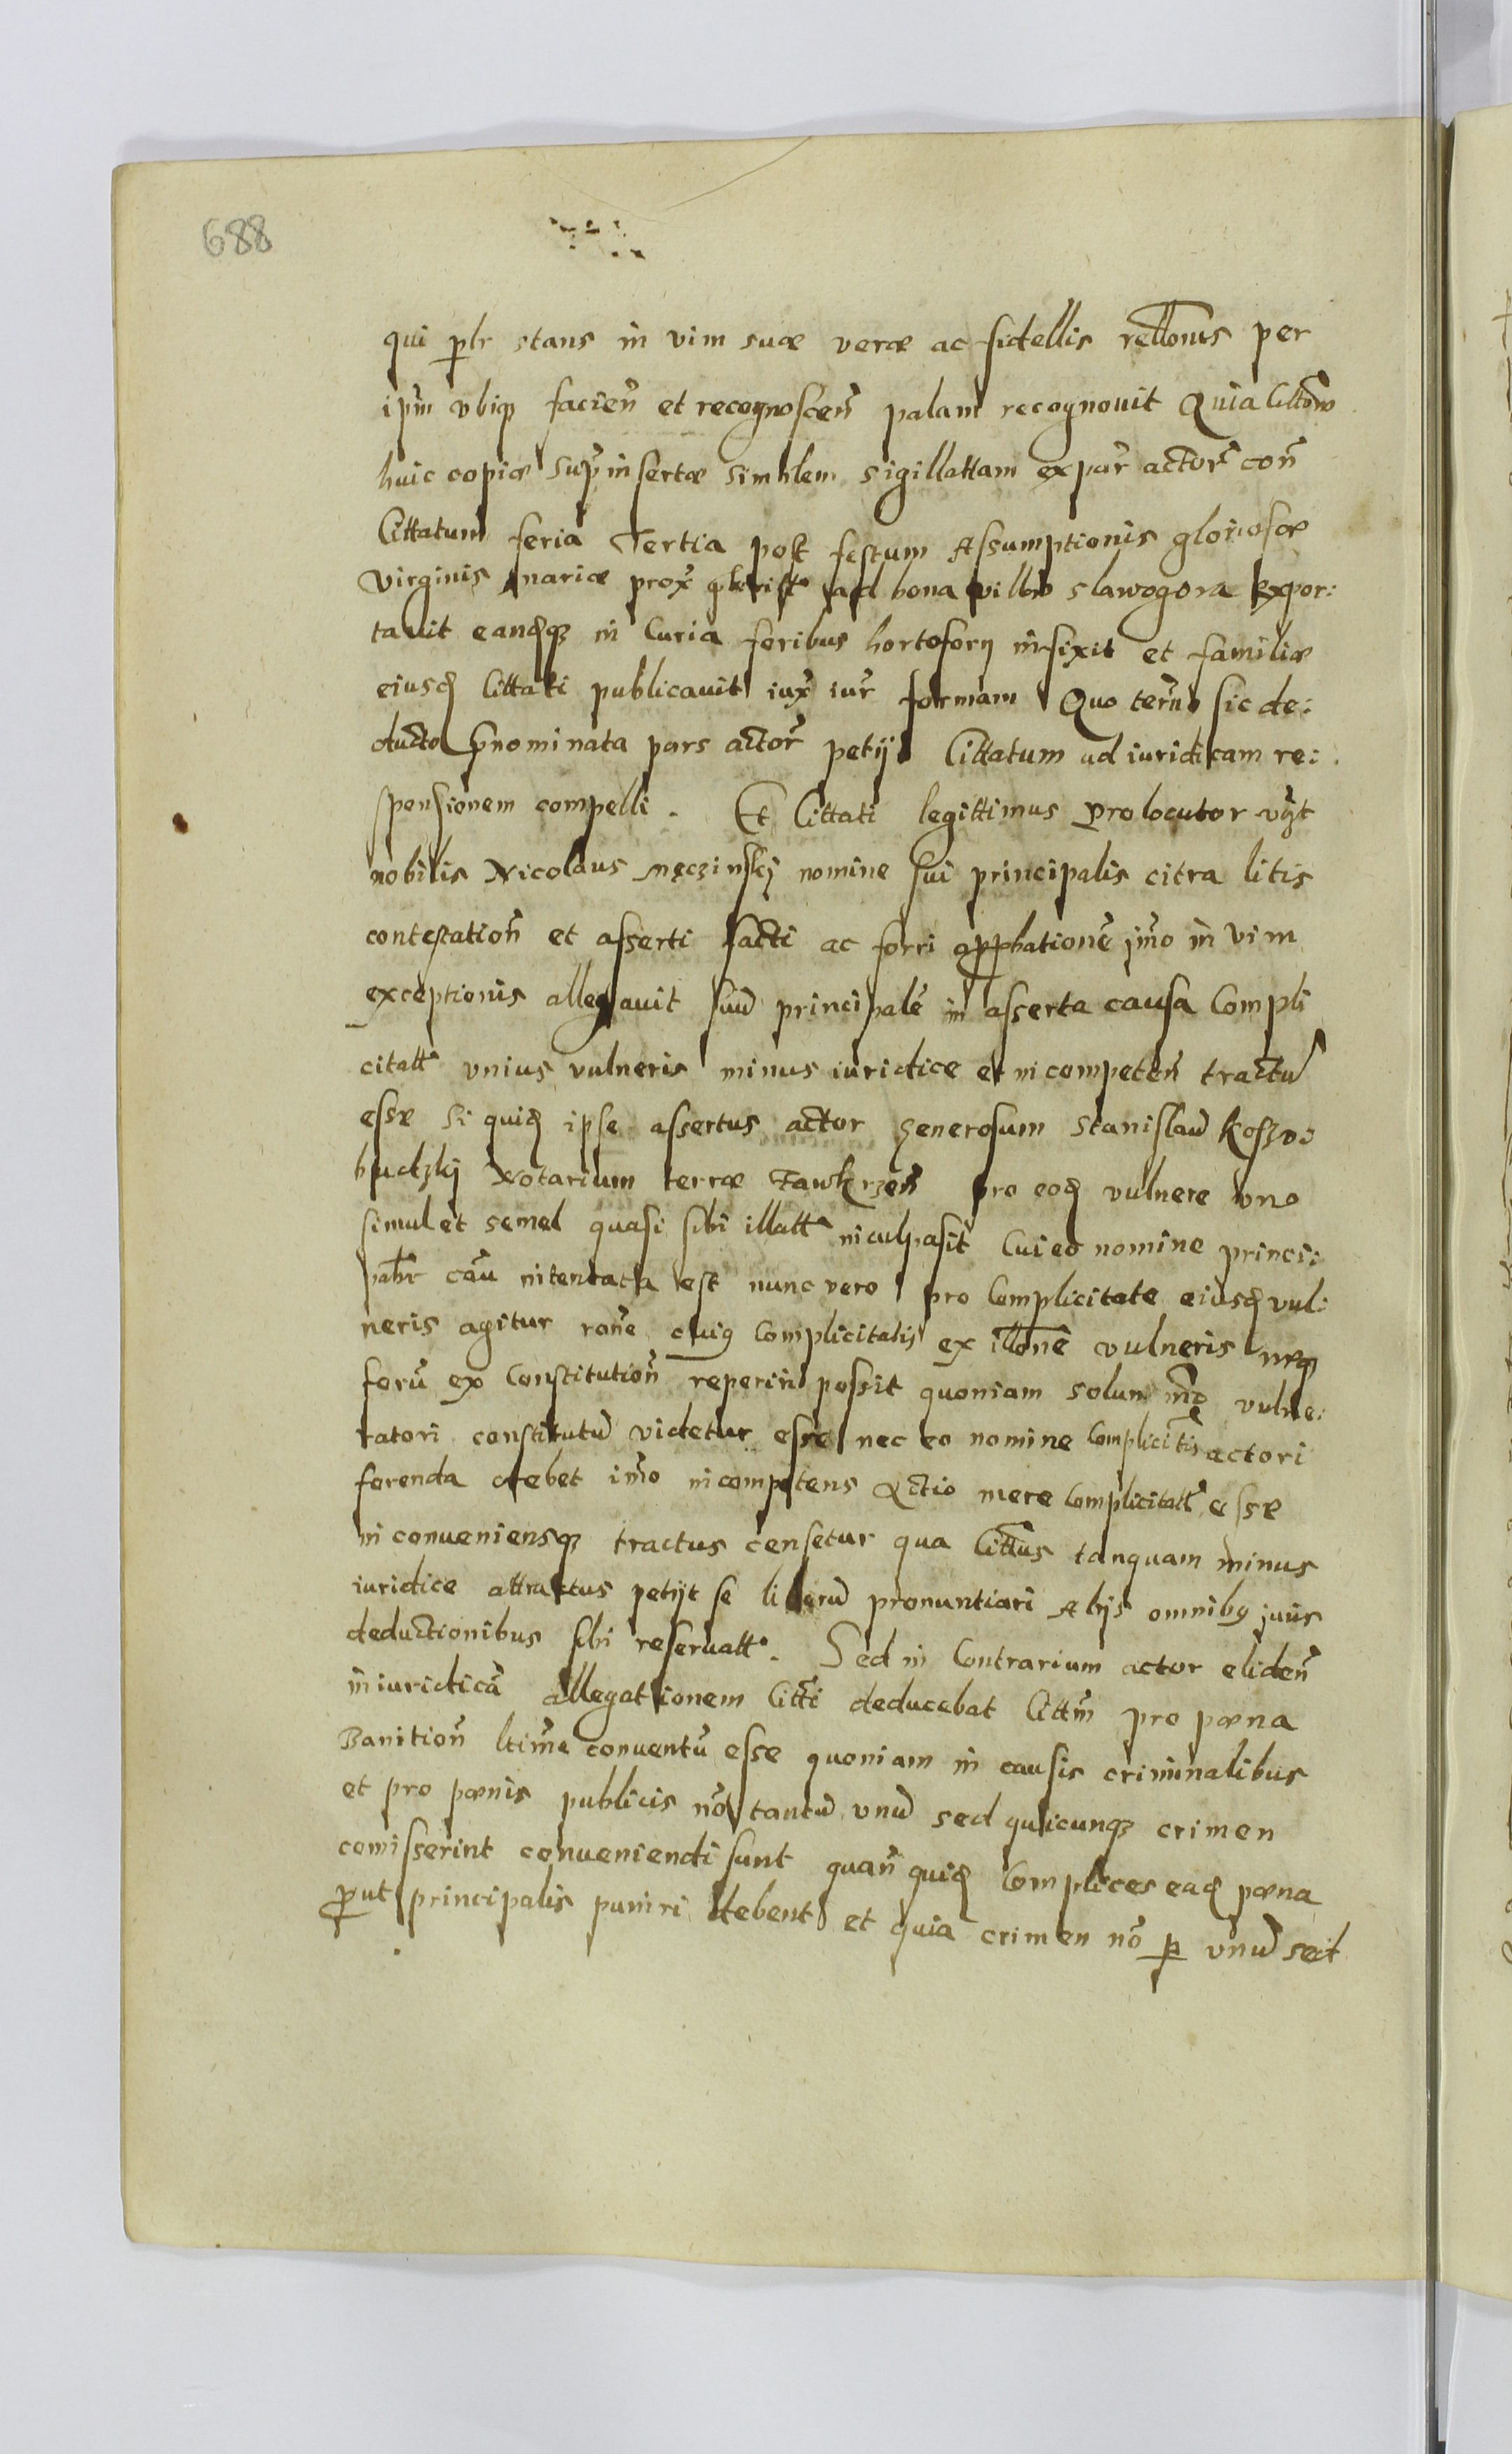 688
qui p̱ntr stans in vim suæ veræ ac fidellis rellõnis per
ipm̃ vbiq facieñ et recognosceñ palam recognovit Quia litt̃oẽ
huic copiæ sup̃insertæ similem sigillattam ex par̃ actor̃ coñ
Cittatum feria Tertia post festum Assumptionis gloriosæ
Virginis mariæ prox̃ ad bona villæ Slawogora expor:
tavit eandqz in Curia foribus hortoforij infixit et familiæ
eiusd Cittati publicavit iux̃ iur̃ formam Quo term̃o sic de:
ducto p̃nominata pars actor̃ petijt Cittatum ad iuridicam re:
sponsionem compelli. Et Cittati legittimus prolocutor vt̃zt
nobilis Nicolaus Męczinskj nomine sui principalis citra litis
contestatioñ et asserti facti ac forri approbationẽ im̃o in vim
exceptionis allegavit suũ principalẽ in asserta causa Compli
citatt̃ unius vulneris minus iuridice et incompeteñ tractũ
esse Si quid ipse assertus actor generosum Stanislaũ Koszo:
budzkj Notarium terræ Zawkrzeñ pro eod vulnere uno
simul et semel quasi sibi illatt̃ inculpasit Cui eo nomine princi:
palr̃ cãu intentata est nunc vero pro Complicitate eiusd vul:
neris agitur ronẽ cuig Complicitatis ex illonẽ vulneris neqz
forũ ex Constitutioñ reperiri possit quoniam solum mo̊d vulne:
ratori constitutũ videtur esse nec eo nomine Complicit̃is actori
ferenda debet im̃o incompetens Actio mere Complicitatt̃ esse
inconueniensqz tractus censetur qua Citt̃us tanquam minus
iuridice attractus petijt se liberũ pronuntiari Alijs omnibg juris
deductionibus sibi reservatt̃. Sed in Contrarium actor elideñ
iniuridicã allegationem Citt̃i deducebat Citt̃m pro pœna
Banitioñ ltim̃e conventũ esse quoniam in causis criminalibus
et pro pœnis publicis nõ tantũ unũ sed quicunqz crimen
comisserint conveniendi sunt quañquid Complices ead pœna
prout principalis puniri debent et quia crimen nõ p̱ unũ sed